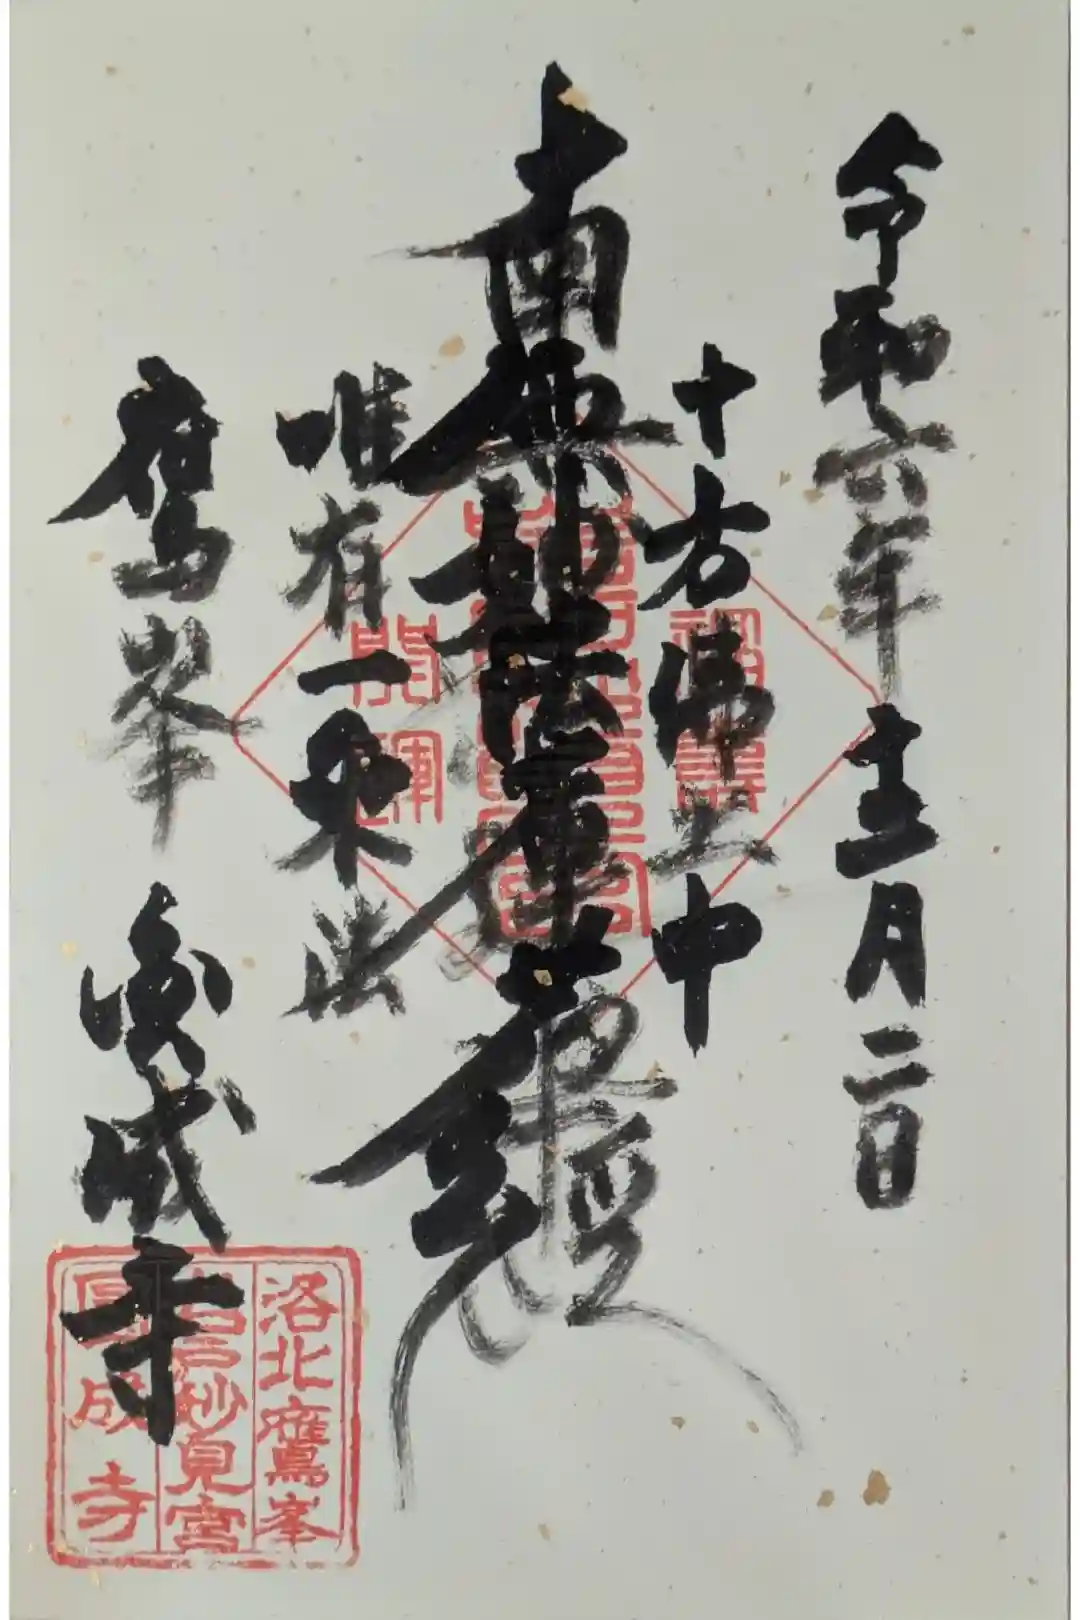 令和六年十二月二日
十方佛土中
南無妙法蓮華経
唯有一乗法
鷹峯 圓成寺
開運
洛北鷹峯
岩戸妙見宮
圓成寺